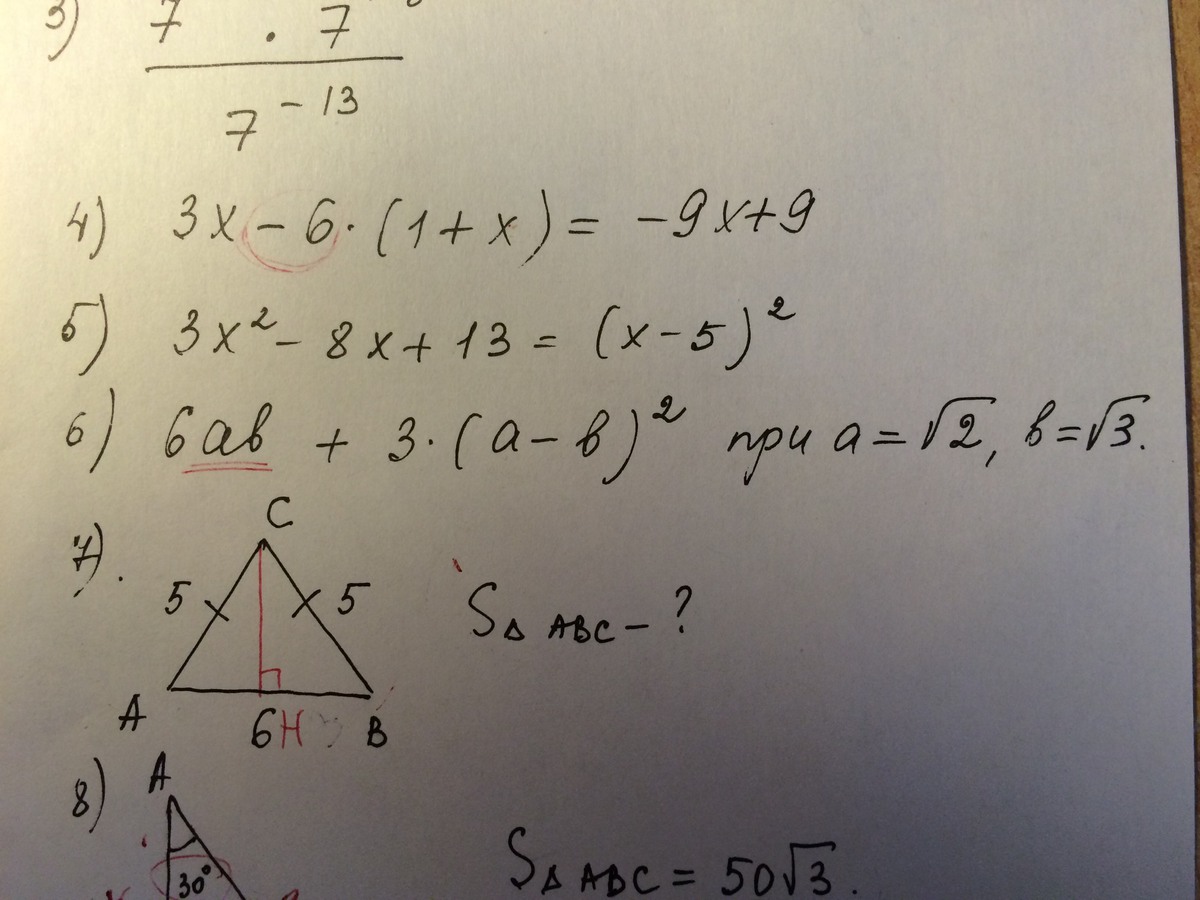 3) 7 · 7
7^-13
4) 3x - 6·(1 + x) = -9x+9
5) 3x² - 8x + 13 = (x - 5)²
6) 6ab + 3·(a - b)² при a = √2, b = √3.
7). C
5 5 S△ABC - ?
A 6 H B
8) A
30° S△ABC = 50√3.